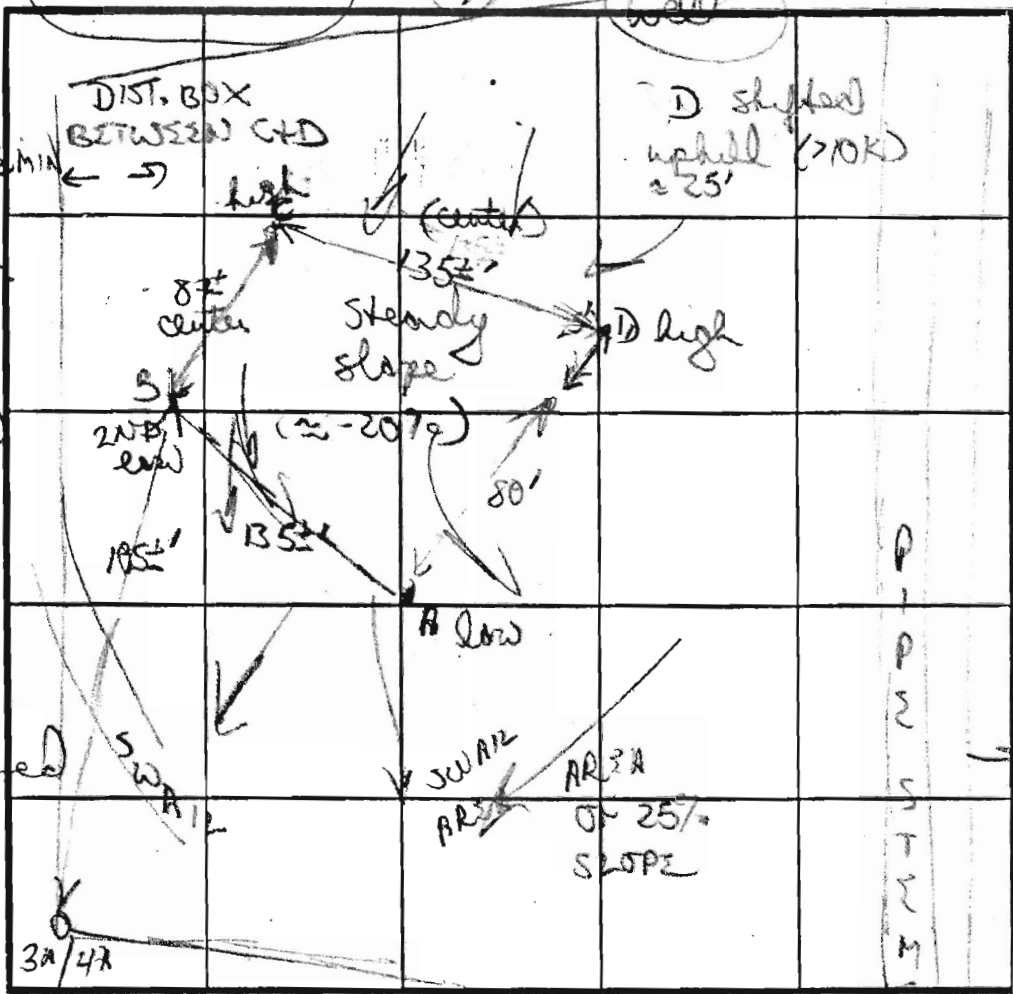 well
DIST. BOX
BETWEEN C+D
MIN
D shifted
uphill (>10K)
≈ 25'
high
C
(center)
135±'
87±
center
Steady
slope
(≈ -20%)
D high
B
2ND
low
80'
135±'
195±'
A low
SWA12
SWA12
AREA
OF 25%
SLOPE
3A/4A
PIPESTEM